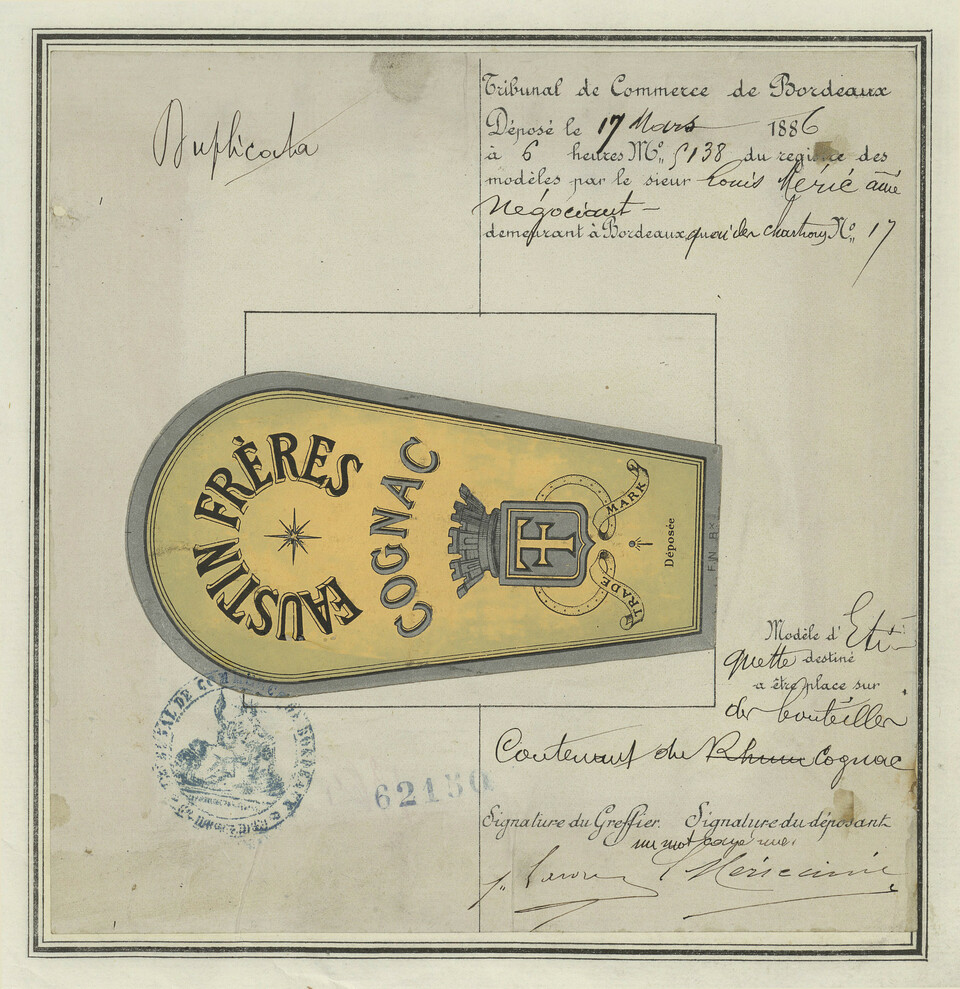 Duplicata
Tribunal de Commerce de Bordeaux
Déposé le 17 Mars 1886
à 6 heures Mo. 5138 du registre des
modèles par le sieur Louis Méric ainé
Négociant
demeurant à Bordeaux quai des chartrons No. 17
FAUSTIN FRÈRES
COGNAC
TRADE MARK
Déposée
Modèle d'Eti
quette destiné
a être place sur
des bouteilles
Contenant du Rhum Cognac
TRIBUNAL DE COMMERCE DE BORDEAUX
62150
Signature du Greffier. Signature du déposant
un mot rayé nul.
Méric ainé